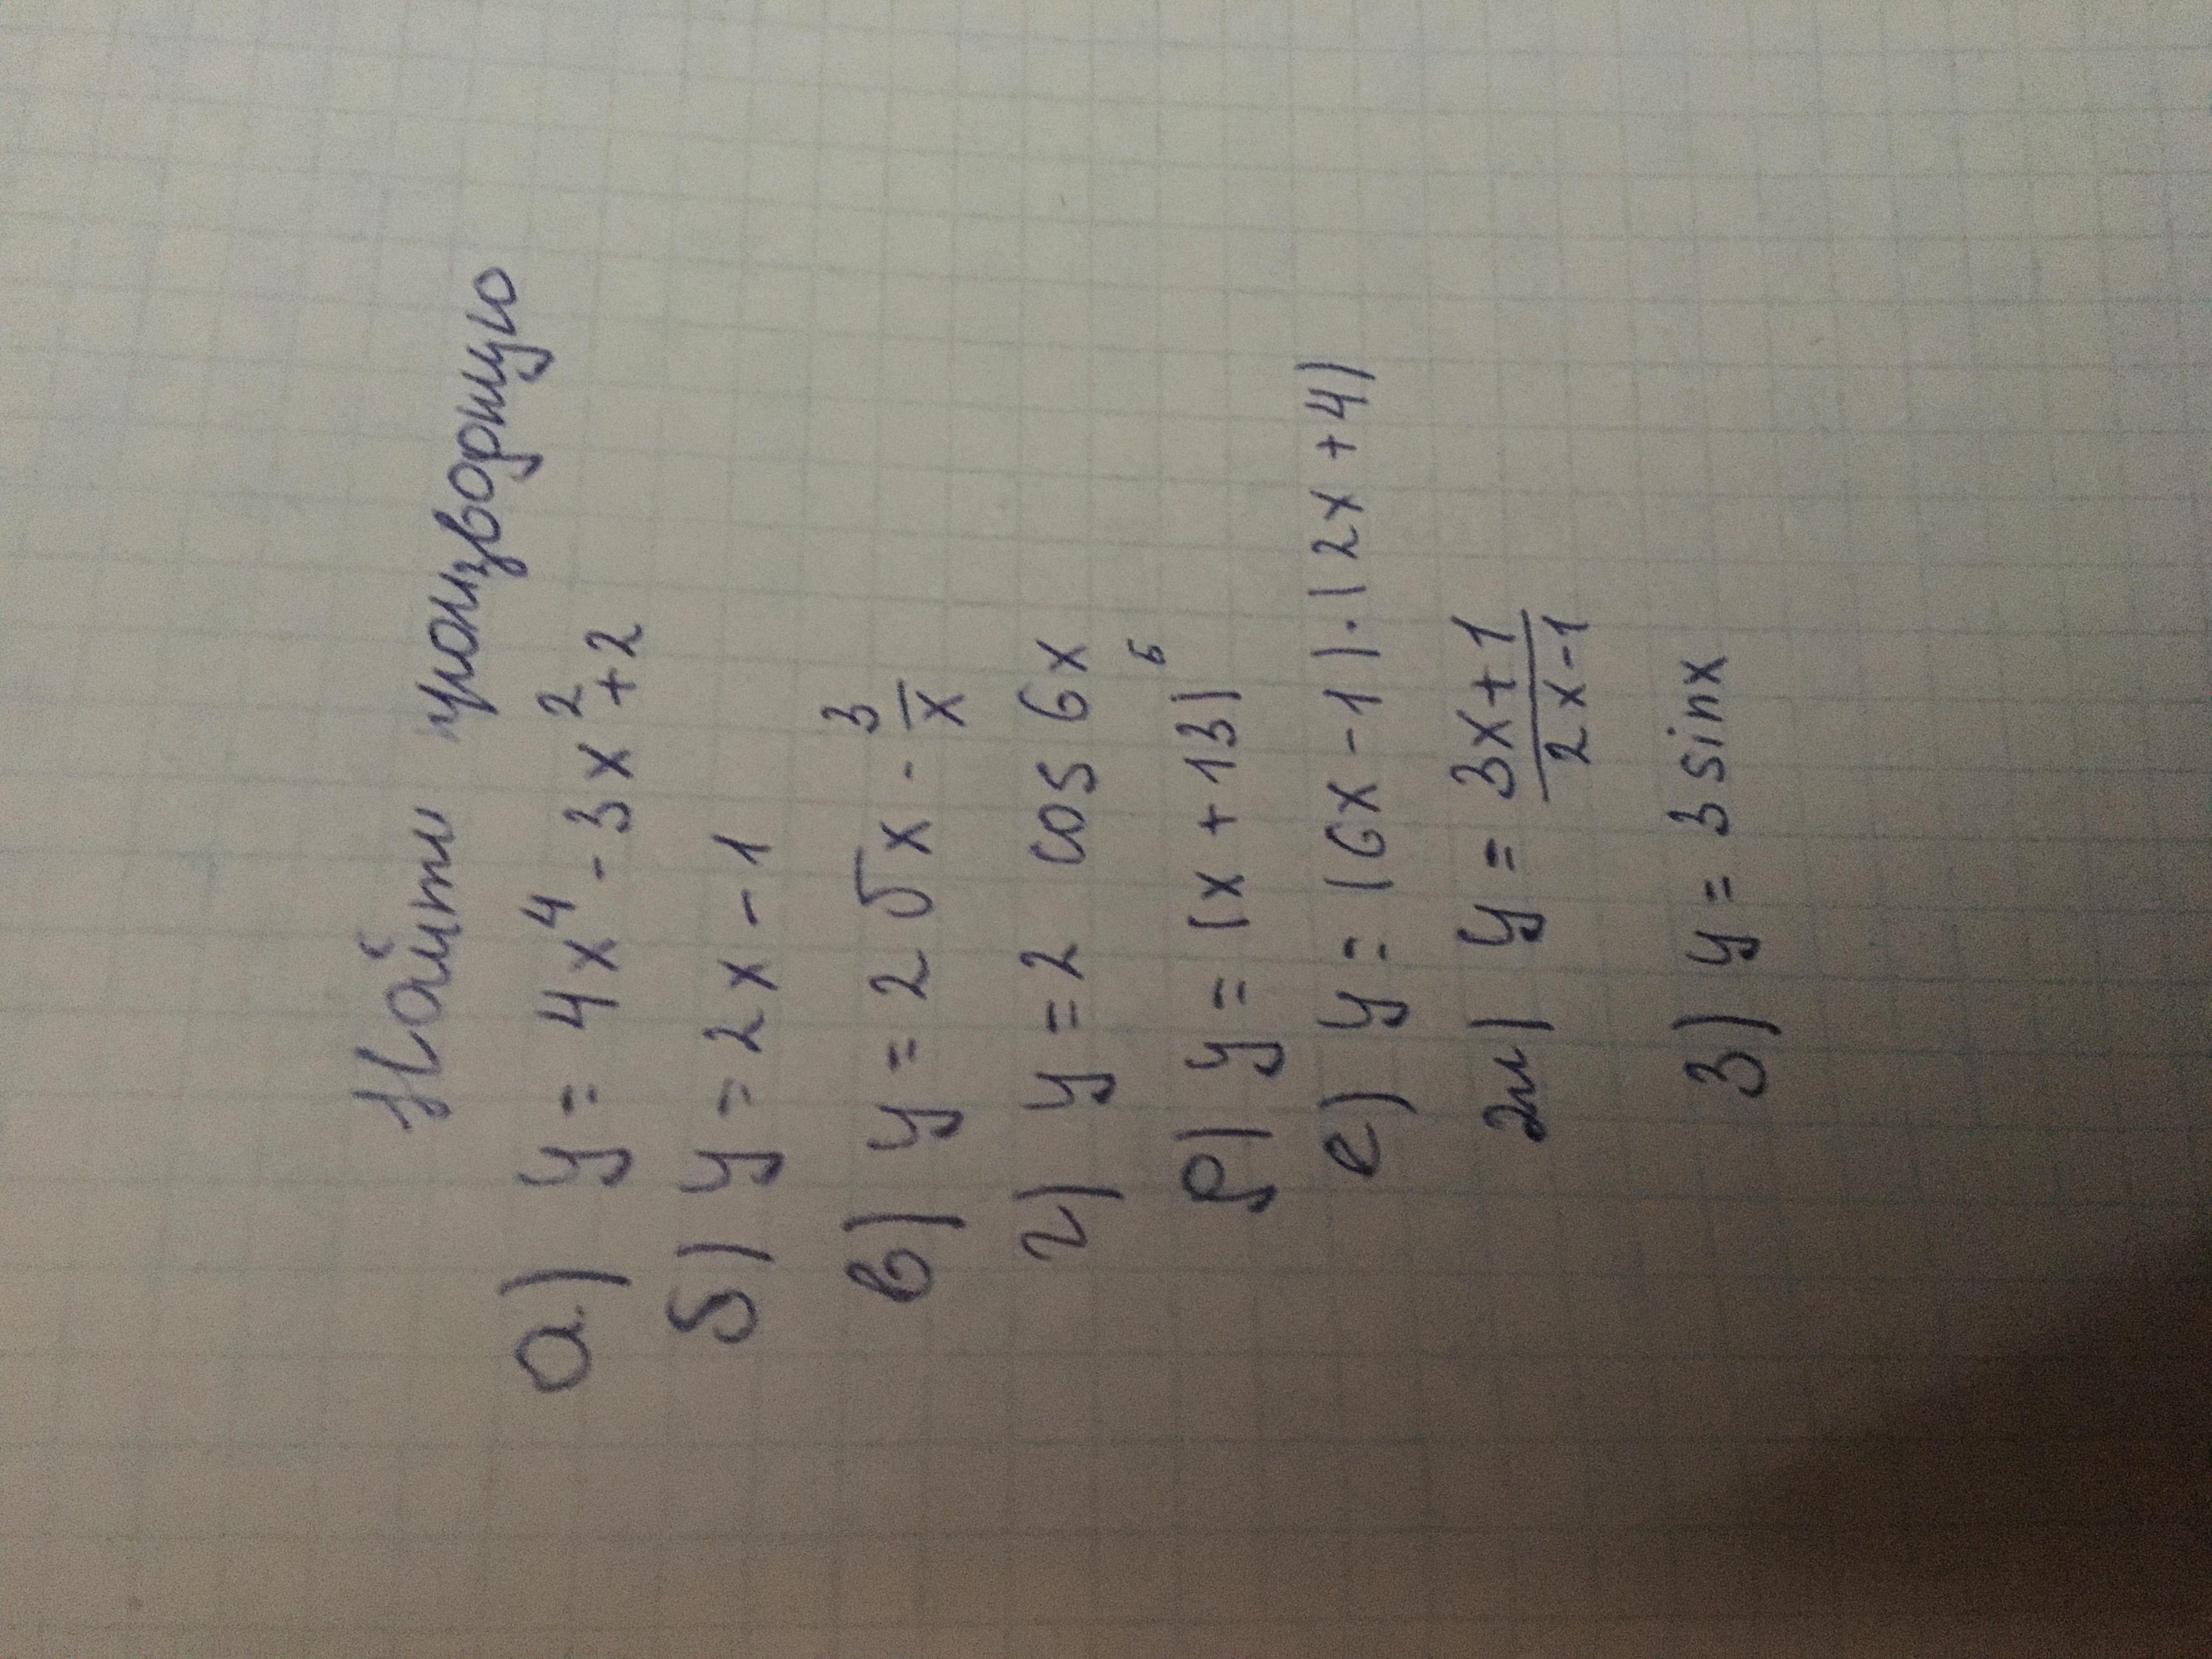 Найти производную
а) y = 4x⁴ - 3x² + 2
б) y = 2x - 1
в) y = 2√x - 3/x
г) y = 2 cos 6x
д) y = (x + 13)⁶
е) y = (6x - 1) · (2x + 4)
ж) y = (3x + 1)/(2x - 1)
з) y = 3 sin x